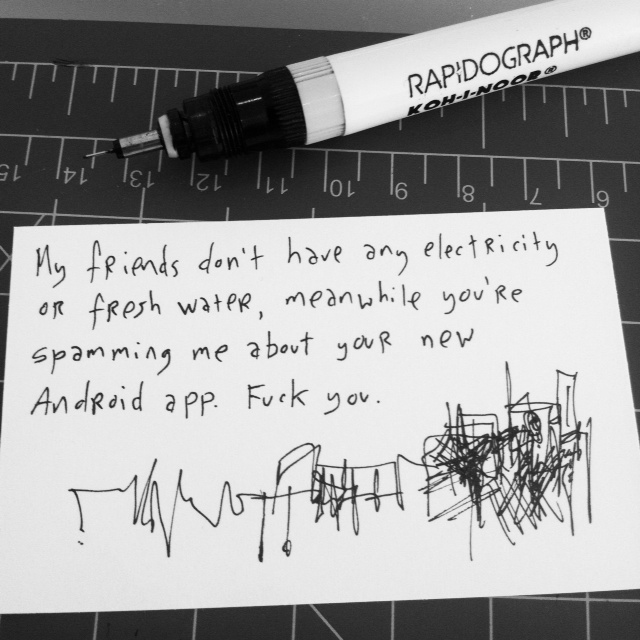 RAPIDOGRAPH®
KOH-I-NOOR®
15 14 13 12 11 10 9 8 7 6
My friends don't have any electricity
or fresh water, meanwhile you're
spamming me about your new
Android app. Fuck you.